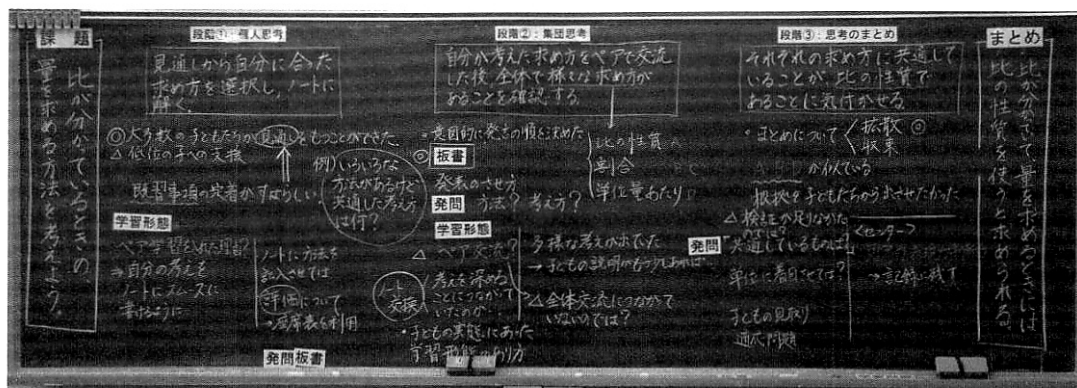 課題
比が分かているときの、
量を求める方法を考えよう。
段階①：個人思考
見通しから自分に合った
求め方を選択し、ノートに
解く。
◎大多数の子どもたちが見通しをもつことができた
△低位の子への支援
既習事項の定着がすばらしい
学習形態
ペア学習を入れた理由?
⇒自分の考えを
ノートにスムーズに
書けるように
ノートに方法を
記入させては
評価について
・座席表を利用
例)いろいろな
方法があるけど
共通した考え方
は何?
発問 板書
段階②：集団思考
自分が考えた求め方をペアで交流
した後、全体で様々な求め方が
あることを確認する。
・意図的に発言の順を決めた
比の性質
割合
単位量あたり
◎板書
発表のさせ方
発問 方法? 考え方?
学習形態
△ペア交流?
ノート交換
考えを深める
ことにつながって
いたのか
・子どもの実態にあった
学習形態のあり方
多様な考えが出てた
→子どもの説明がもう少しあれば…
△全体交流につながって
いないのでは?
段階③：思考のまとめ
それぞれの求め方に共通して
いることが、比の性質で
あることに気付かせる。
・まとめについて
拡散 ◎
収束
が似ている
根拠を子どもたちから出させたかった
△検証が足りなかた
のでは?
発問 共通しているものは?
単位に着目させては?
子どもの見取り
適応問題
<センター>
→記録に残す
まとめ
比が分かてて量を求めるときには
比の性質を使うと求められる。